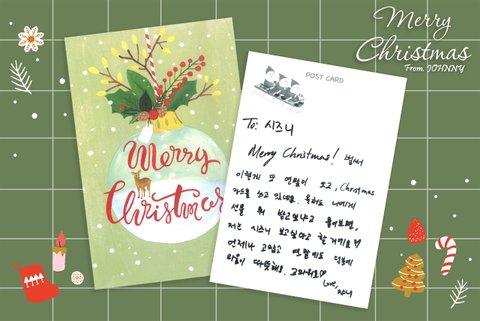 Merry
Christmas
From. JOHNNY
Merry
Christmas
POST CARD
To: 시즈니
Merry Christmas! 벌써
이렇게 또 연말이 오고, Christmas
카드를 쓰고 있네요. 혹시 나에게
선물 뭐 받고싶냐고 물어보면,
저는 시즈니 보고싶다고 할 거에요♡
언제나 고맙고 연말에도 덕분에
마음이 따뜻해요. 고마워요♡
Love,